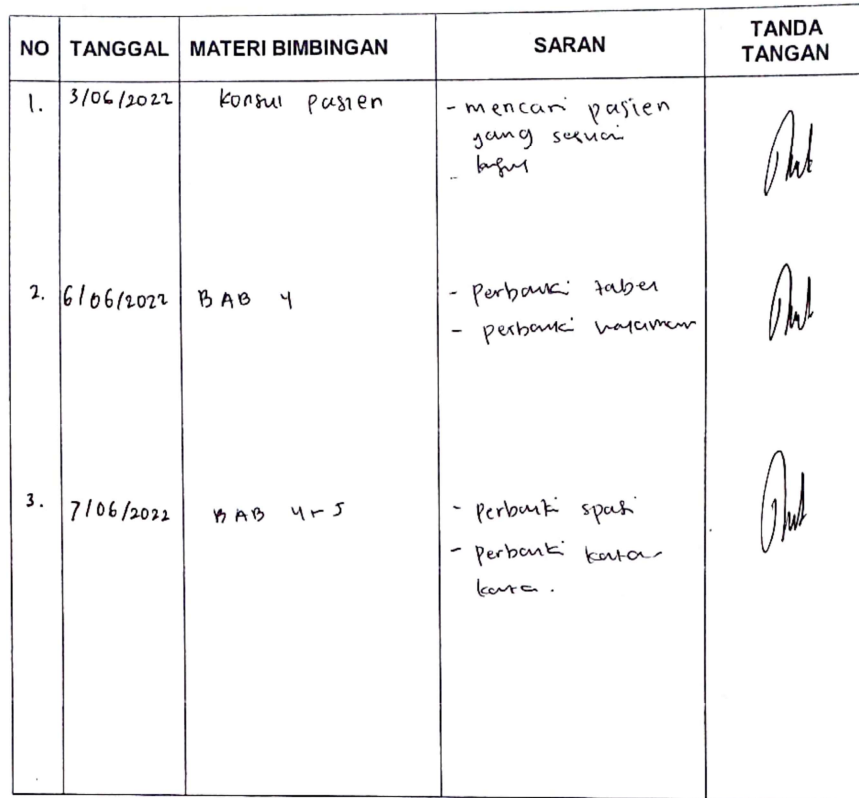 NO TANGGAL MATERI BIMBINGAN SARAN TANDA TANGAN
1. 3/06/2022 Konsul pasien - mencari pasien
yang sesuai
-
2. 6/06/2022 BAB 4 - perbaiki tabel
- perbaiki halaman
3. 7/06/2022 BAB 4 + 5 - perbaiki spasi
- perbaiki kata
kata.